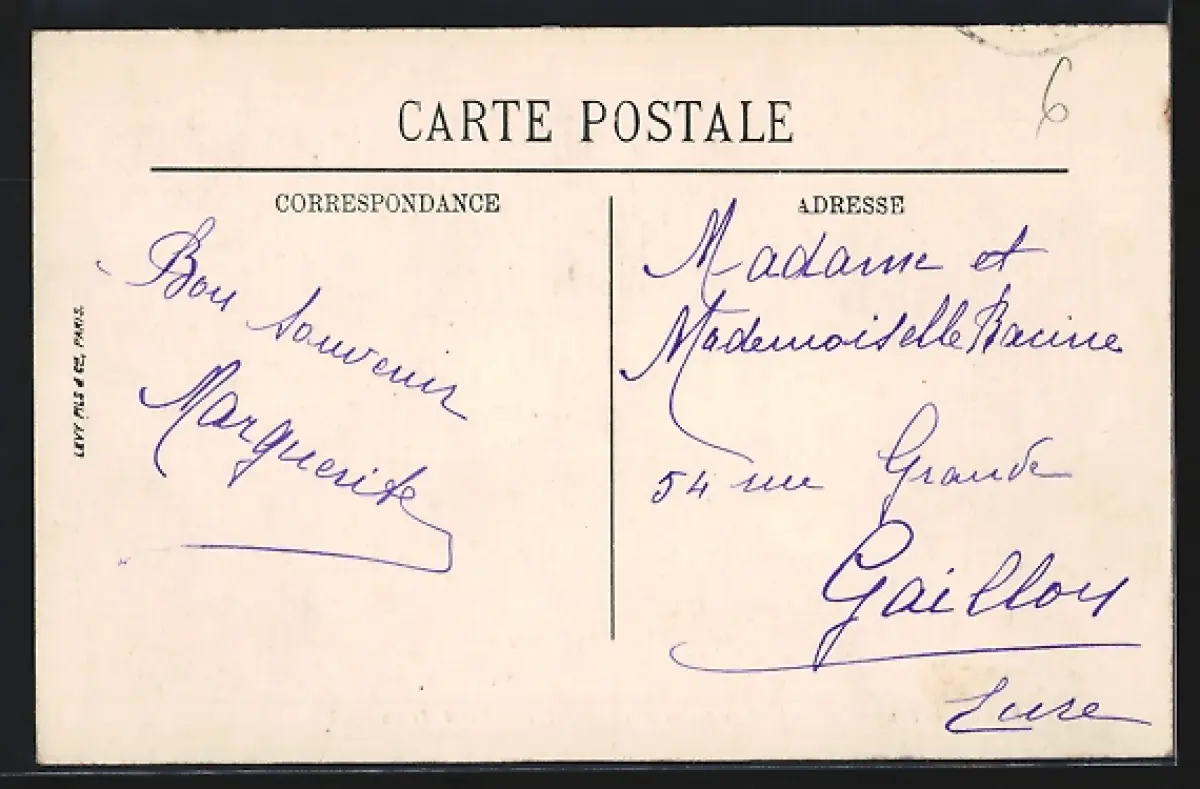 CARTE POSTALE
6
CORRESPONDANCE
Bon souvenir
Marguerite
LEVY FILS & CIE, PARIS.
ADRESSE
Madame et
Mademoiselle Racine
54 rue Grande
Gaillon
Eure